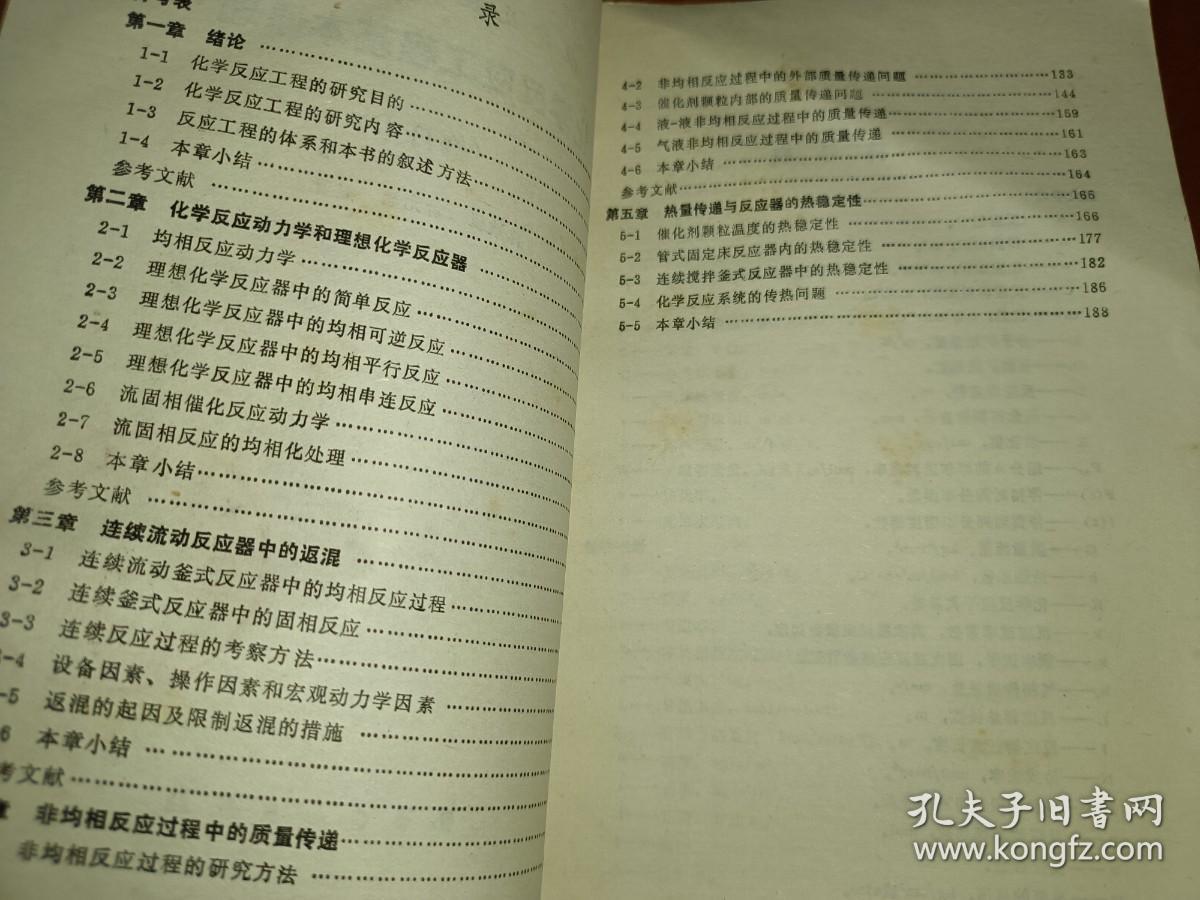 录
第一章 绪论 ……………
1-1 化学反应工程的研究目的 ……………
1-2 化学反应工程的研究内容……………
1-3 反应工程的体系和本书的叙述方法……………
1-4 本章小结……………
参考文献 ……………
第二章 化学反应动力学和理想化学反应器 ……………
2-1 均相反应动力学 ……………
2-2 理想化学反应器中的简单反应 ……………
2-3 理想化学反应器中的均相可逆反应 ……………
2-4 理想化学反应器中的均相平行反应 ……………
2-5 理想化学反应器中的均相串连反应 ……………
2-6 流固相催化反应动力学 ……………
2-7 流固相反应的均相化处理 ……………
2-8 本章小结……………
参考文献 ……………
第三章 连续流动反应器中的返混 ……………
3-1 连续流动釜式反应器中的均相反应过程 ……………
3-2 连续釜式反应器中的固相反应 ……………
3-3 连续反应过程的考察方法……………
-4 设备因素、操作因素和宏观动力学因素 ……………
-5 返混的起因及限制返混的措施 ……………
6 本章小结 ……………
考文献……………
章 非均相反应过程中的质量传递……………
非均相反应过程的研究方法 ……………
4-2 非均相反应过程中的外部质量传递问题 ……………133
4-3 催化剂颗粒内部的质量传递问题 ……………144
4-4 液-液非均相反应过程中的质量传递……………159
4-5 气液非均相反应过程中的质量传递 ……………161
4-6 本章小结 ……………163
参考文献……………164
第五章 热量传递与反应器的热稳定性……………166
5-1 催化剂颗粒温度的热稳定性 ……………166
5-2 管式固定床反应器内的热稳定性 ……………177
5-3 连续搅拌釜式反应器中的热稳定性 ……………182
5-4 化学反应系统的传热问题 ……………186
5-5 本章小结 ……………188
孔夫子旧书网
www.kongfz.com